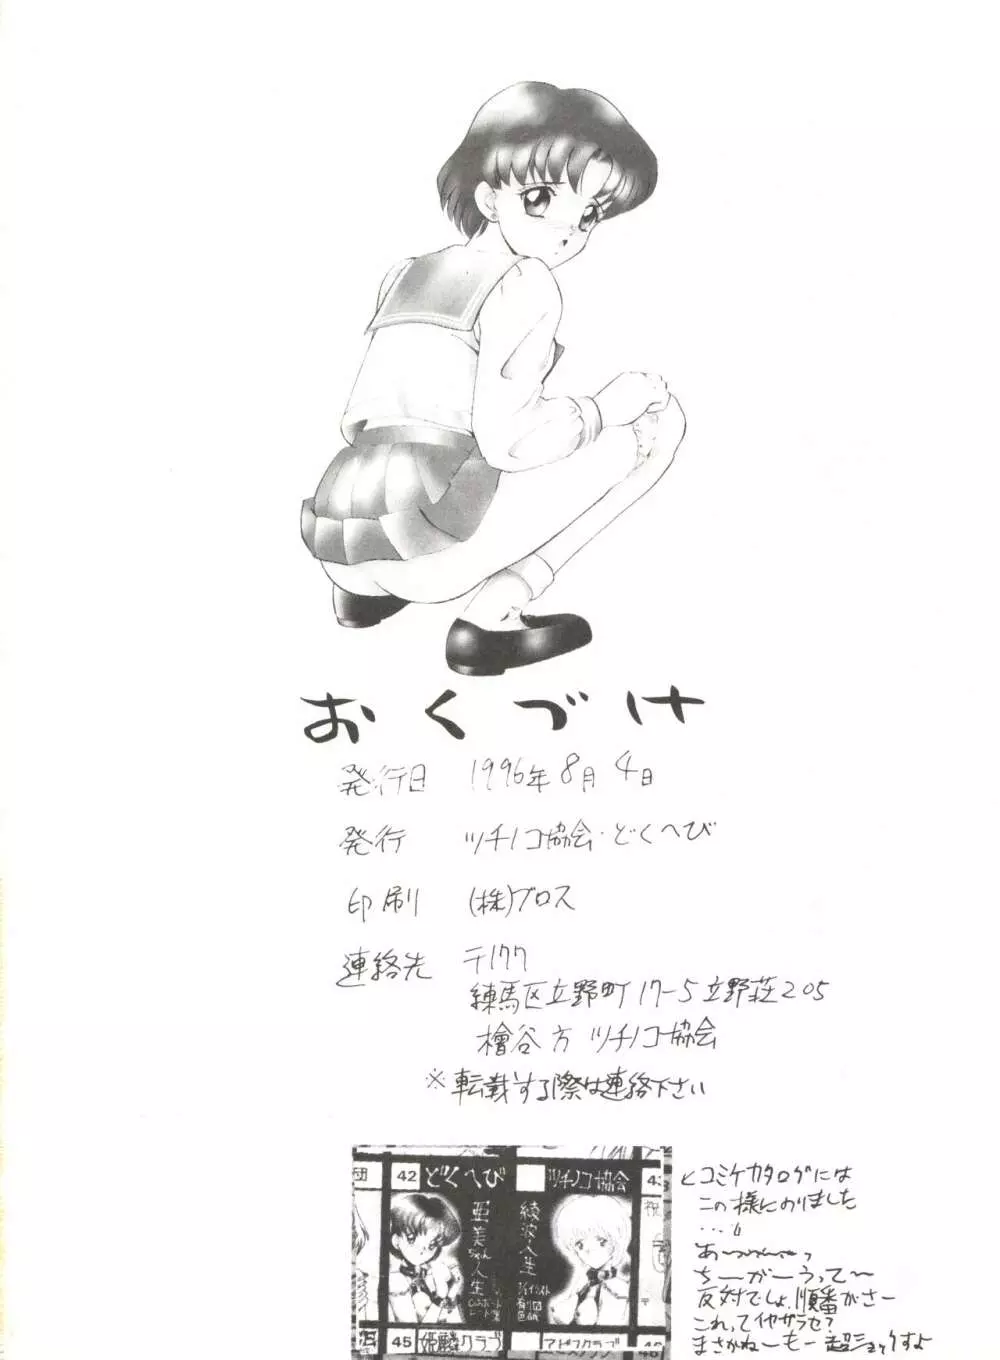 おくづけ
発行日 1996年8月4日
発行 ツチノコ協会・どくへび
印刷 (株)ブロス
連絡先 〒177
練馬区立野町17-5立野荘205
檜谷方 ツチノコ協会
※転載する際は連絡下さい
団 42 どくへび ツチノコ協会 43
亜美ちゃん人生
綾波人生
45 姫麟クラブ アドアクラブ 46
コミケカタログには
この様にのりました
…!!
あ〜
ちーがーうって〜
反対でしょ、順番がさー
これってイヤガラセ?
まさかねーもー超ショックすよ